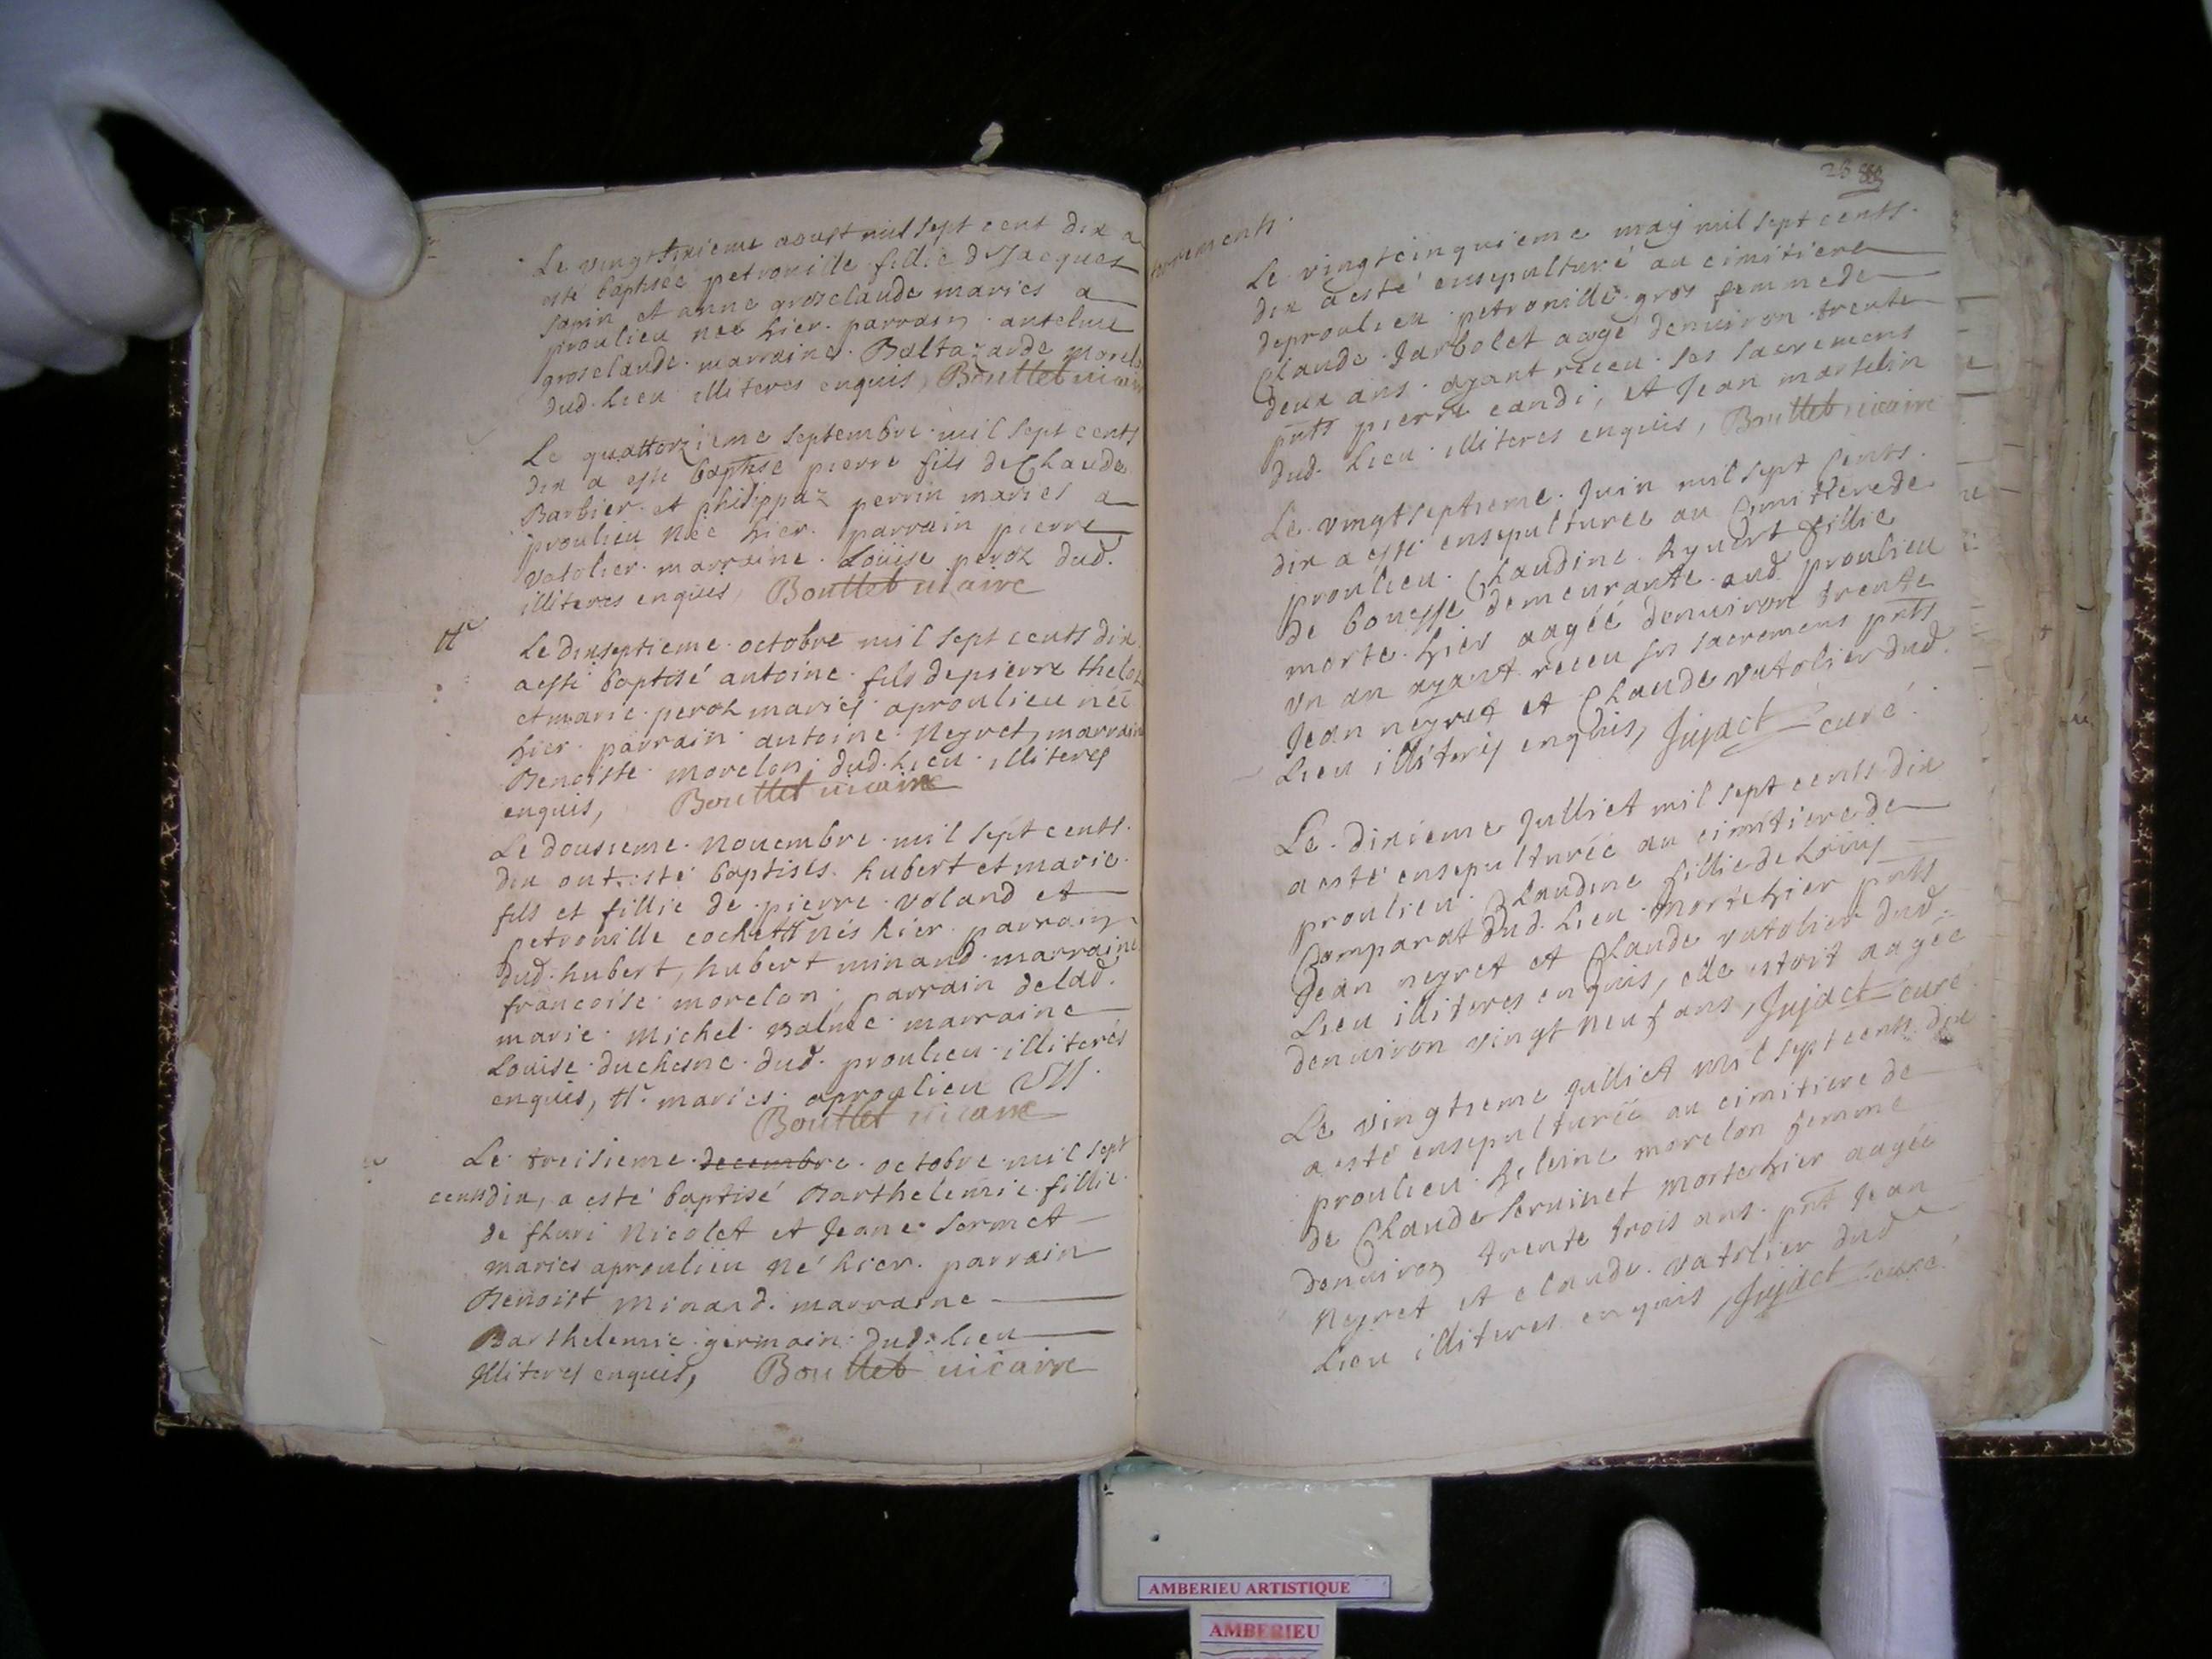 Le vingtsixieme aoust mil sept cent dix a
esté baptisée petronille fillie d Jacques
savin et anne grosclaude maries a
proulieu née hier. parrain anselme
grosclaude marraine Baltazarde Morel
dud. lieu illiteres enquis, Bouttet vicaire
Le quattorzieme septembre mil sept cents
dix a esté baptisé pierre fils de Claude
Barbier et philippaz perrin maries a
proulieu née hier. parrain pierre
vatolier marraine Louise peroz dud.
illiteres enquis, Bouttet vicaire
Le dixseptieme octobre mil sept cents dix
a esté baptisé antoine fils de pierre
et marie peroz maries a proulieu née
hier parrain antoine Neyret, marraine
Benoiste morelon dud. lieu illiteres
enquis, Bouttet vicaire
Le dousieme novembre mil sept cents
dix ont esté baptisés hubert et marie
fils et fillie de pierre voland et
petronille cochet tt nés hier parrain
dud. hubert, hubert minand marraine
francoise morelon, parrain de lad.
marie Michel Balme marraine
Louise duchesne dud. proulieu illiterés
enquis, tt maries a proulieu
Bouttet vicaire
Le treisieme decembre octobre mil sept
cents dix, a esté baptisé Barthelemie fillie
de fleuri Nicolet et Jeane sermet
maries a proulieu né hier. parrain
Benoist Minand. marraine
Barthelemie germain dud. lieu
Illiteres enquis, Bouttet vicaire
28
terrements
Le vingtcinquieme may mil sept cents
dix a esté ensepulturé au cimitiere
de proulieu petronille gros femme de
Claude Jarbolet aagé denuiron trente
deux ans ayant receu ses sacremens
pnts pierre candi, et Jean martelin
dud. Lieu illiteres enquis, Bouttet vicaire
Le vingtseptieme Juin mil sept Cents
dix a esté ensepulturee au Cimittere de
proulieu Claudine fillie
de bouesse demeurante aud proulieu
morte hier aagéé denuiron trente
un an ayant receu ses sacremens pnts
Jean neyret et Claude vatolier dud.
Lieu illiteris enquis, Jujact curé
Le dixieme Julliet mil sept cents dix
a esté ensepulturée au cimitiere de
proulieu Claudine fillie de Loüis
Comparat dud. Lieu morte hier pnts
Jean neyret et Claude vatolier dud
Lieu illiteres enquis, elle estoit aagée
denuiron vingt neuf ans, Jujact curé
Le vingtieme Julliet mil sept cents dix
a esté ensepulturée au cimitiere de
proulieu heleine morelon femme
de Claude seruinet morte hier aagée
denuiron trente trois ans. pnt Jean
Neyret et claude vatolier dud
Lieu illiteres enquis, Jujact curé
AMBERIEU ARTISTIQUE
AMBERIEU